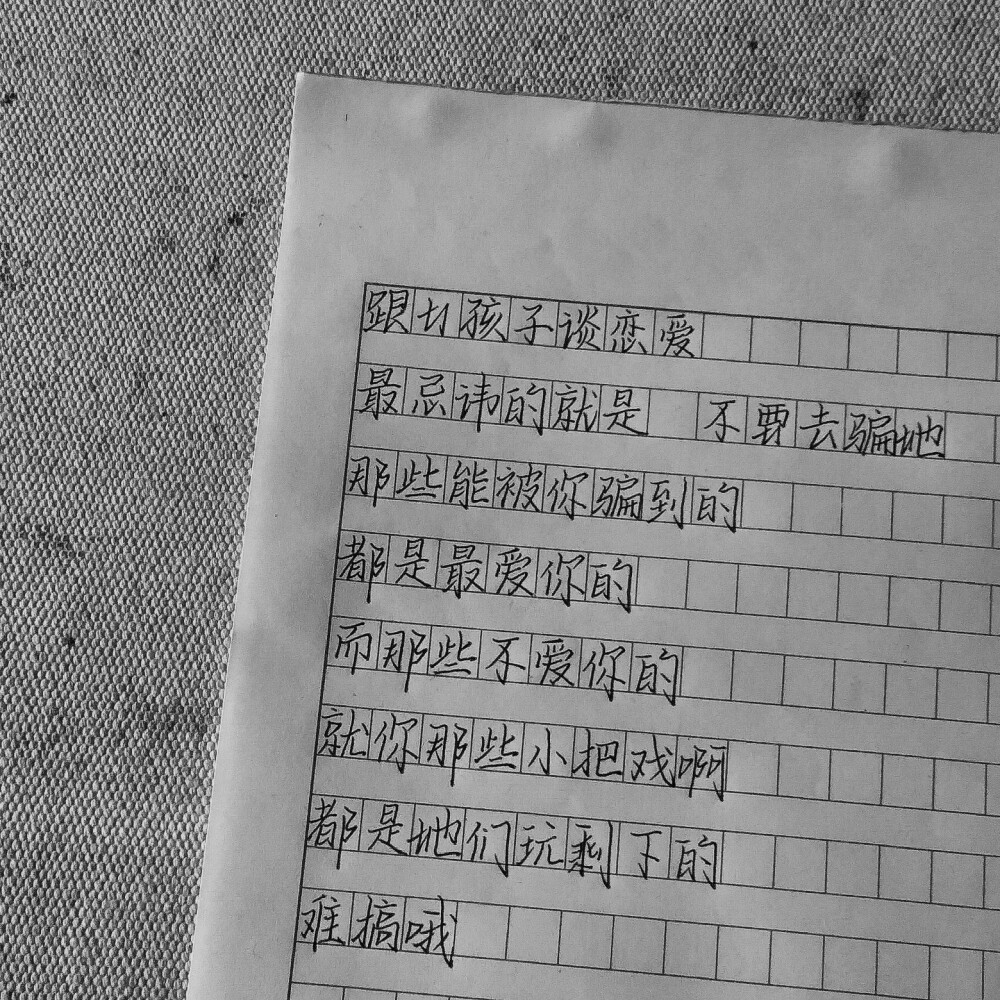 跟女孩子谈恋爱
最忌讳的就是 不要去骗她
那些能被你骗到的
都是最爱你的
而那些不爱你的
就你那些小把戏啊
都是她们玩剩下的
难搞哦